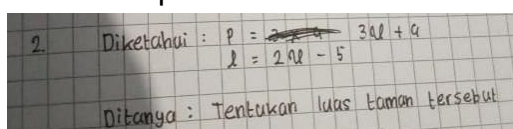 2. Diketahui : p = 3x + 4
l = 2x - 5
Ditanya : Tentukan luas taman tersebut